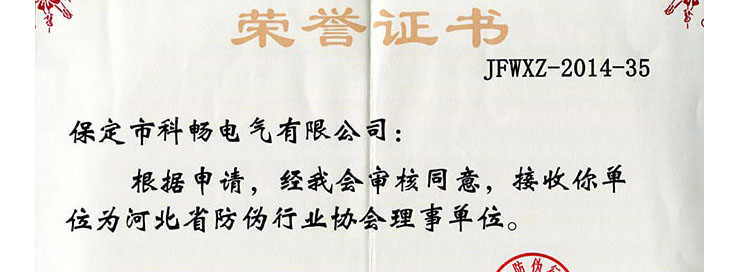 荣誉证书
JFWXZ-2014-35
保定市科畅电气有限公司：
根据申请，经我会审核同意，接收你单
位为河北省防伪行业协会理事单位。
防伪